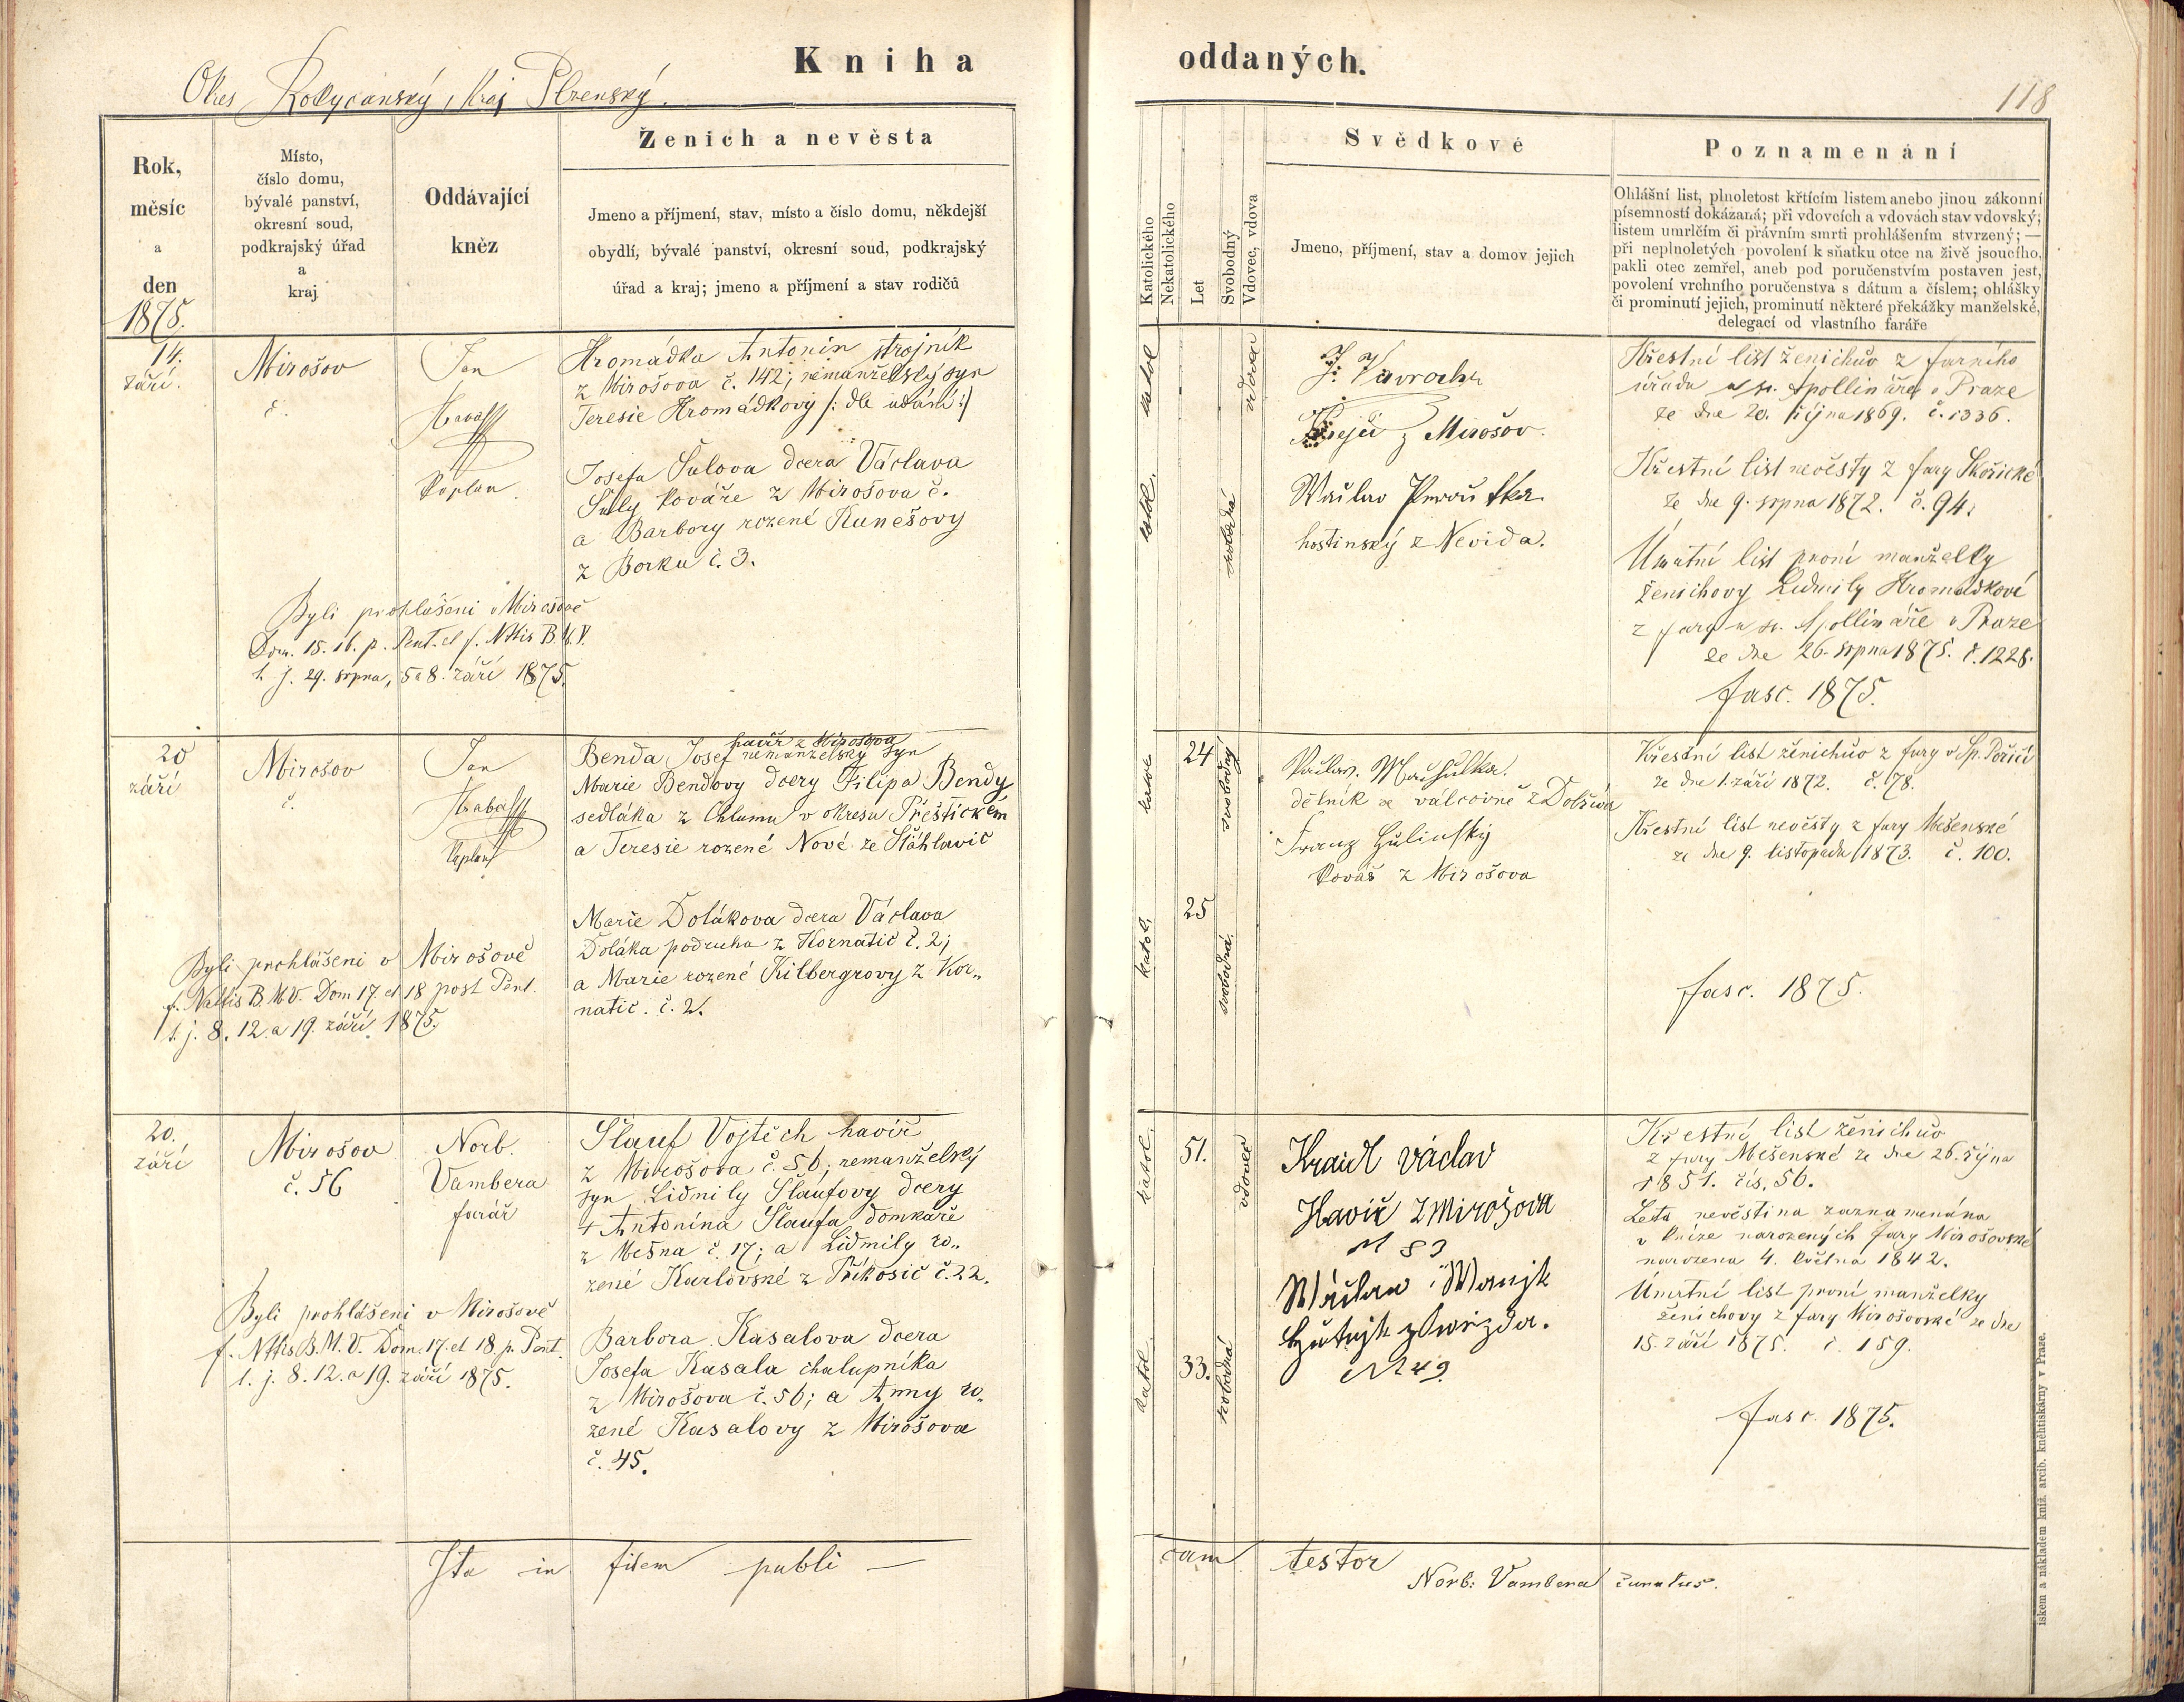 Kniha oddaných.
Okres Rokycanský, Kraj Plzenský.
118
Rok,
měsíc
a
den
1875.
Místo,
číslo domu,
bývalé panství,
okresní soud,
podkrajský úřad
a
kraj
Oddávající
kněz
Ženich a nevěsta
Jmeno a příjmení, stav, místo a číslo domu, někdejší
obydlí, bývalé panství, okresní soud, podkrajský
úřad a kraj; jmeno a příjmení a stav rodičů
Katolického
Nekatolického
Let
Svobodný
Vdovec, vdova
Svědkové
Jmeno, příjmení, stav a domov jejich
Poznamenání
Ohlášní list, plnoletost křtícím listem anebo jinou zákonní
písemností dokázaná; při vdovcích a vdovách stav vdovský;
listem umrlčím či právním smrti prohlášením stvrzený; —
při neplnoletých povolení k sňatku otce na živě jsoucího,
pakli otec zemřel, aneb pod poručenstvím postaven jest,
povolení vrchního poručenstva s dátum a číslem; ohlášky
či prominutí jejich, prominutí některé překážky manželské,
delegací od vlastního faráře
14.
září.
Mirošov
č.
Jan
kaplan.
Hromádka Antonín strojník
z Mirošova č. 142; nemanželský syn
Teresie Hromádkovy /: dle udání :/
Josefa Šulova dcera Václava
Šuly kováře z Mirošova č.
a Barbory rozené Kunešovy
z Borku č. 3.
Byli prohlášeni v Mirošově
Dom. 15. 16. p. Pent. et f. Nttis B.M.V.
t. j. 29. srpna, 5 a 8. září 1875.
katol.
vdovec
katol.
svobodná
z Mirošov.
hostinský z Nevida.
Křestní list ženichův z farního
úřadu u sv. Apollináře v Praze
ze dne 20. října 1869. č. 1336.
Křestní list nevěsty z fary Skořické
ze dne 9. srpna 1872. č. 94.
Úmrtní list první manželky
ženichovy Lidmily Hromádkové
z fary u sv. Apollináře v Praze
ze dne 26. srpna 1875. č. 1228.
fasc. 1875.
20
září
Mirošov
č.
Jan
kaplan
havíř z Mirošova
Benda Josef nemanželský syn
Marie Bendovy dcery Filipa Bendy
sedláka z Chlumu v okresu Přeštickém
a Teresie rozené Nové ze Štáhlavic
Marie Dolákova dcera Václava
Doláka podruha z Kornatic č. 2;
a Marie rozené Kilbergrovy z Kor„
natic. č. 2.
Byli prohlášeni v Mirošově
f. Nattis B.M.V. Dom 17. et 18 post Pent.
t. j. 8. 12. a 19. září 1875.
24
svobodný
katol.
25
svobodná.
dělník ve válcovně z Dobřiva
Franz
kovář z Mirošova
Křestní list ženichův z fary v Sp. Poříčí
ze dne 1. září 1872. č. 78.
Křestní list nevěsty z fary Mešenské
ze dne 9. listopadu 1873. č. 100.
fasc. 1875.
20.
září
Mirošov
č. 56
Norb.
Vambera
farář
Šlauf Vojtěch havíř
z Mirošova č. 56; nemanželský
syn Lidmily Šlaufovy dcery
+ Antonína Šlaufa domkáře
z Mešna č. 17; a Lidmily ro„
zené Karlovské z Příkosic č. 22.
Barbora Kasalova dcera
Josefa Kasala chalupníka
z Mirošova č. 56; a Anny ro„
zené Kasalovy z Mirošova
č. 45.
Byli prohlášeni v Mirošově
f. Nttis B.M.V. Dom. 17. et 18. p. Pent.
t. j. 8. 12. a 19. září 1875.
katol.
51.
vdovec
katol.
33.
svobodná
Kraidl václav
Havíř z Mirošova
N 83
Wáclaw Wanjk
N 49.
Křestní list ženichův
z fary Mešenské ze dne 26. října
1851. čís. 56.
Leta nevěstina zaznamenána
v knize narozených fary Mirošovské
narozena 4. května 1842.
Úmrtní list první manželky
ženichovy z fary Mirošovské ze dne
15. září 1875. č. 159.
fasc. 1875.
Ita in fidem publi — cam testor
Norb. Vambera curatus.
iskem a nákladem kníž. arcib. kněhtiskárny v Praze.